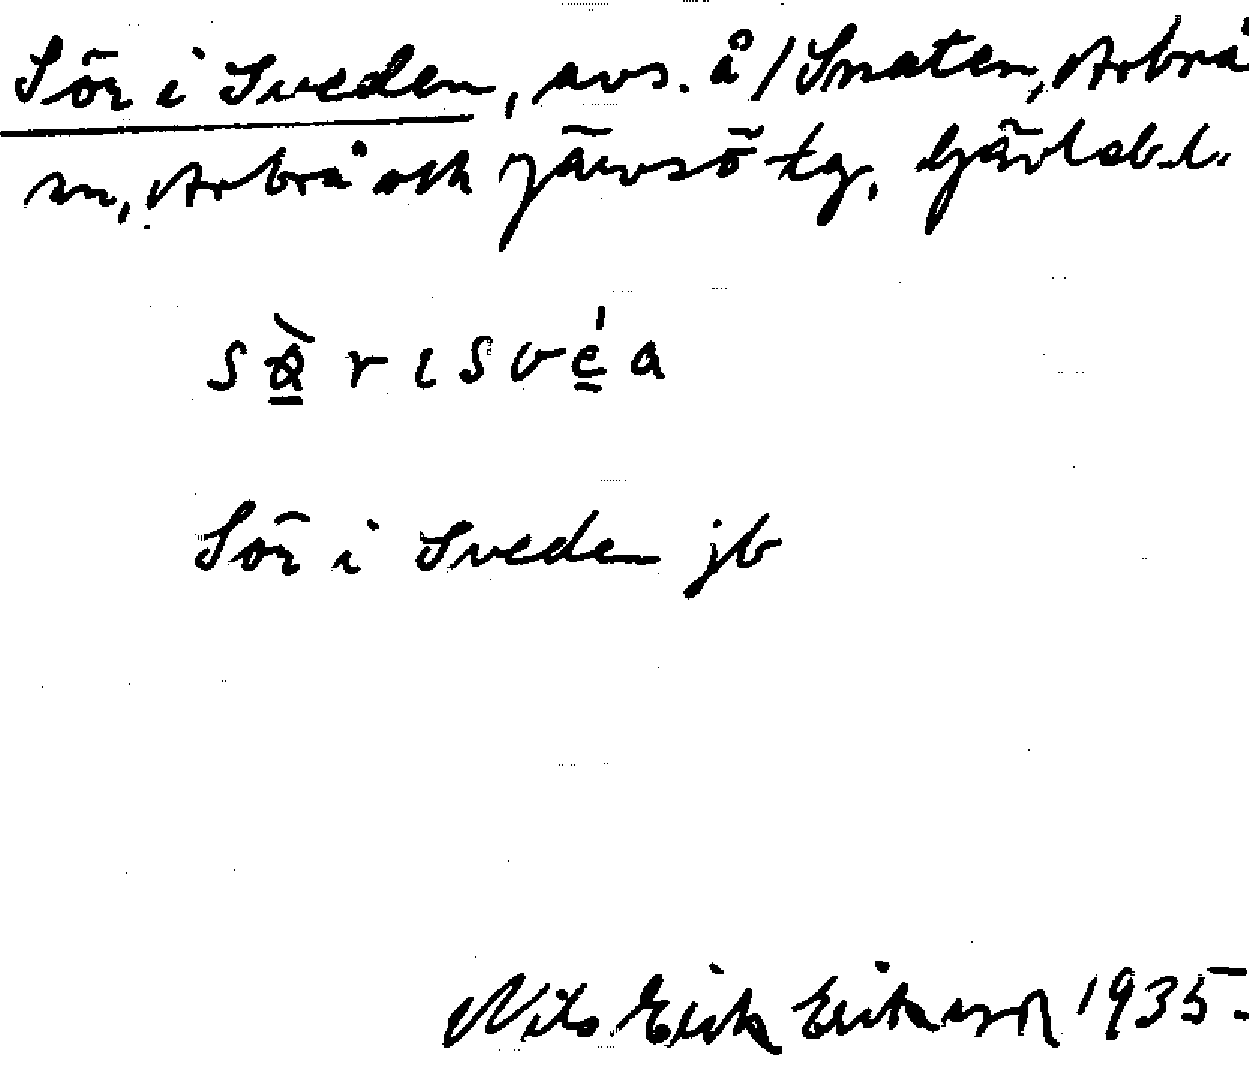 Sör i Sveden, avs. å /Snaten, Arbrå
sn, Arbrå och Järvsö tg, Gävleb. l.
sàrɩsvéa
Sör i Sveden jb
Nils Erik Eriksson 1935.